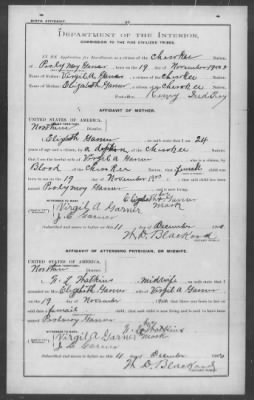 BIRTH AFFIDAVIT.
DEPARTMENT OF THE INTERIOR,
COMMISSION TO THE FIVE CIVILIZED TRIBES.
IN RE Application for Enrollment, as a citizen of the Cherokee Nation,
of born on the 19 day of November
Name of Father: Virgil A Garner a citizen of the Cherokee Nation.
Name of Mother: Elizabeth Garner a citizen of the Cherokee Nation.
AFFIDAVIT OF MOTHER.
UNITED STATES OF AMERICA,
Northern District.
I, Elizabeth Garner, on oath state that I am 24
years of age and a citizen, by adoption of the Cherokee Nation;
that I am the lawful wife of Virgil A Garner, who is a citizen, by
Blood of the Cherokee Nation; that a female child was
born to me on the 19 day of November, that said child has been
named Garner, and is now living.
her
Elizabeth x Garner
mark
Virgil A Garner
J. C. Garner
Subscribed and sworn to before me this 11 day of December
W. D. Blackard
AFFIDAVIT OF ATTENDING PHYSICIAN, OR MIDWIFE.
UNITED STATES OF AMERICA,
Northern District.
Watkins, a midwife, on oath state that I
attended on Mrs. Elizabeth Garner, wife of Virgil A Garner
on the 19 day of November; that there was born to her on
said date a female child; that said child is now living and is said to have been
named Garner
her
Watkins
mark
Virgil A Garner
J. C. Garner
Subscribed and sworn to before me this 11 day of December
W. D. Blackard